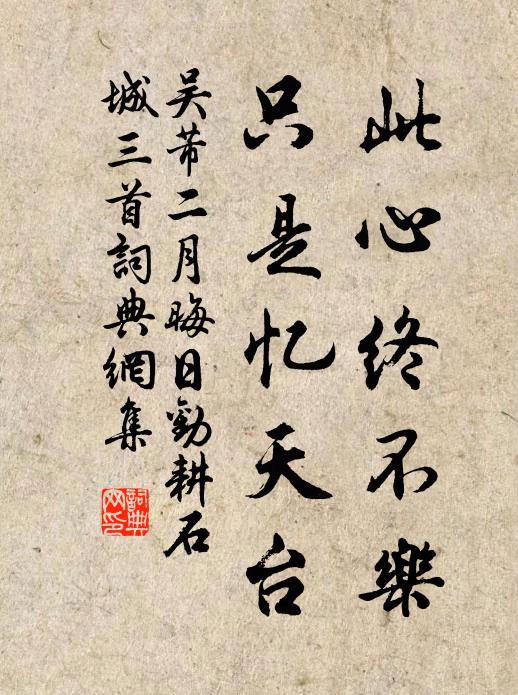 此心终不樂
只是忆天台
吴芾二月晦日勸耕石
城三首詞典網集
詞典
网印